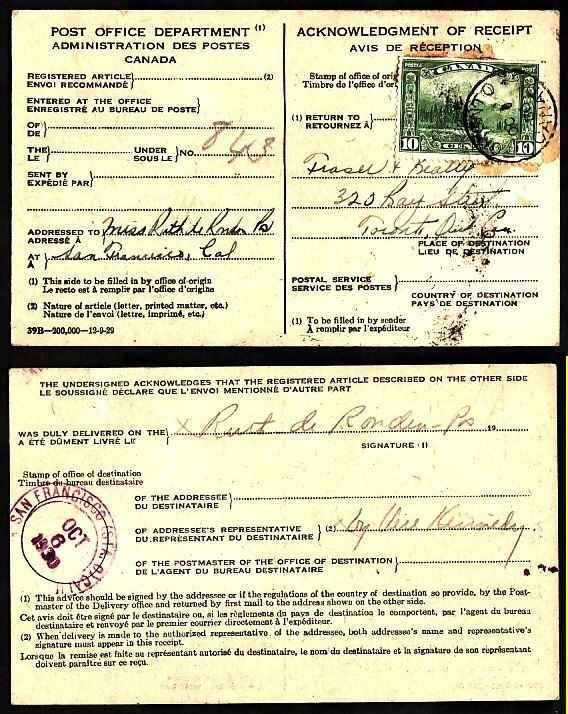 POST OFFICE DEPARTMENT (1)
ADMINISTRATION DES POSTES
CANADA
REGISTERED ARTICLE (2)
ENVOI RECOMMANDÉ
ENTERED AT THE OFFICE
ENREGISTRÉ AU BUREAU DE POSTE
OF
DE
THE UNDER NO. 843
LE SOUS LE
SENT BY
EXPÉDIÉ PAR
ADDRESSED TO Miss Ruth de Ps
ADRESSÉ À
AT San Francisco, Cal
À
(1) This side to be filled in by office of origin
Le recto est à remplir par l'office d'origine
(2) Nature of article (letter, printed matter, etc.)
Nature de l'envoi (lettre, imprimé, etc.)
39B—200,000—12-9-29
ACKNOWLEDGMENT OF RECEIPT
AVIS DE RÉCEPTION
Stamp of office of orig
Timbre de l'office d'or
POSTES POSTAGE
CANADA
10 10
TORONTO
(1) RETURN TO
RETOURNEZ À
Fraser & Beatty
320 Bay Street
Toronto, Ont. Can
PLACE OF DESTINATION
LIEU DE DESTINATION
POSTAL SERVICE
SERVICE DES POSTES
COUNTRY OF DESTINATION
PAYS DE DESTINATION
(1) To be filled in by sender
À remplir par l'expéditeur
THE UNDERSIGNED ACKNOWLEDGES THAT THE REGISTERED ARTICLE DESCRIBED ON THE OTHER SIDE
LE SOUSSIGNÉ DÉCLARE QUE L'ENVOI MENTIONNÉ D'AUTRE PART
WAS DULY DELIVERED ON THE x de Ps 19
A ÉTÉ DÛMENT LIVRÉ LE
SIGNATURE (1)
Stamp of office of destination
Timbre du bureau destinataire
SAN FRANCISCO
OCT
6
1930
OF THE ADDRESSEE
DU DESTINATAIRE
OF ADDRESSEE'S REPRESENTATIVE (2) x by
DU REPRÉSENTANT DU DESTINATAIRE
OF THE POSTMASTER OF THE OFFICE OF DESTINATION
DE L'AGENT DU BUREAU DESTINATAIRE
(1) This advice should be signed by the addressee or if the regulations of the country of destination so provide, by the Post-
master of the Delivery office and returned by first mail to the address shown on the other side.
Cet avis doit être signé par le destinataire ou, si les règlements du pays de destination le comportent, par l'agent du bureau
destinataire et renvoyé par le premier courrier directement à l'expéditeur.
(2) When delivery is made to the authorized representative of the addressee, both addressee's name and representative's
signature must appear in this receipt.
Lorsque la remise est faite au représentant autorisé du destinataire, le nom du destinataire et la signature de son représentant
doivent paraître sur ce reçu.